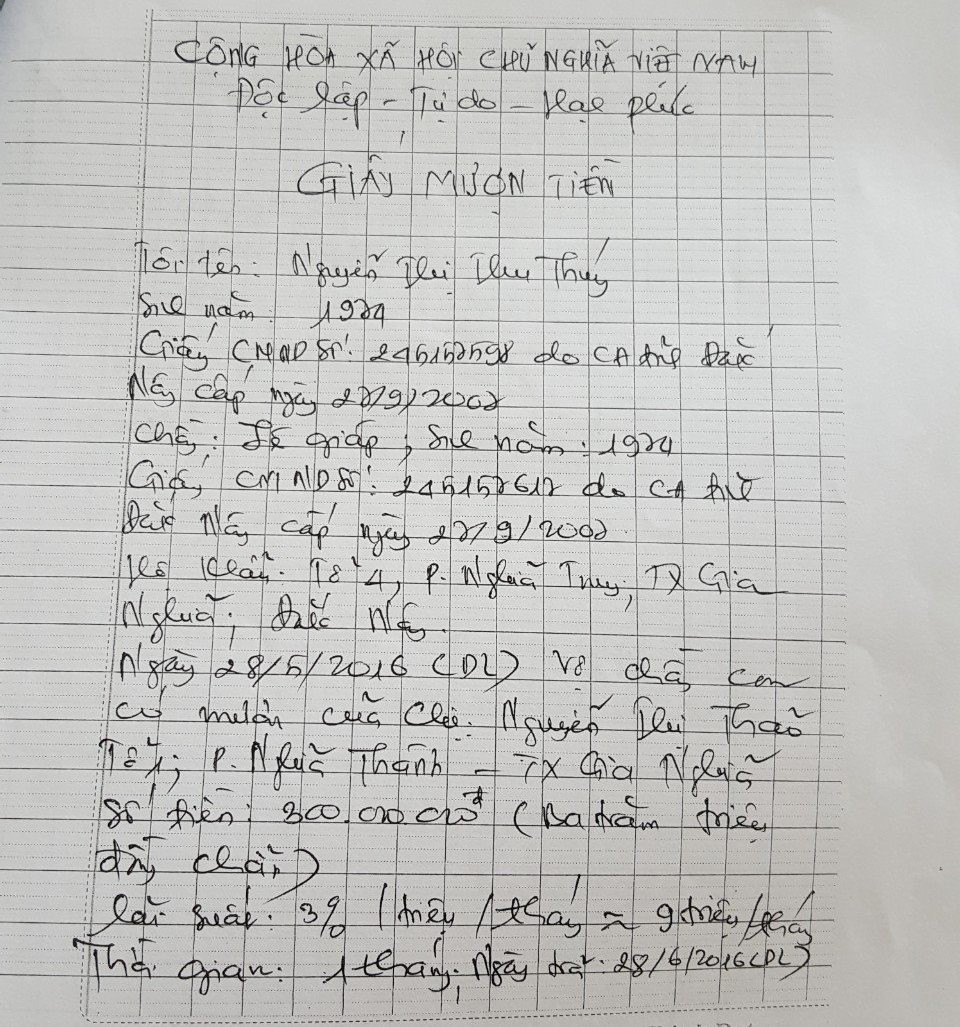 CỘNG HÒA XÃ HỘI CHỦ NGHĨA VIỆT NAM
Độc lập - Tự do - Hạnh phúc
GIẤY MƯỢN TIỀN
Tôi tên: Nguyễn Thị Thu Thúy
Sinh năm: 1974
Giấy CMND Số: 245157598 do CA tỉnh Đắc
Nông cấp ngày 27/9/2007
Chồng: Lê giáp, Sinh năm: 1974
Giấy CMND Số: 245157617 do CA tỉnh
Đắc Nông cấp ngày 27/9/2007
Hộ khẩu: Tổ 4, P. Nghĩa Trung, TX Gia
Nghĩa, Đắc Nông.
Ngày 28/5/2016 (DL) Vợ chồng con
có mượn của Chị: Nguyễn Thị Thảo
Tổ 1, P. Nghĩa Thành - TX Gia Nghĩa
Số tiền: 300.000.000đ (Ba trăm triệu
đồng chẵn)
Lãi suất: 3% /triệu/tháng ≈ 9triệu/tháng
Thời gian: 1 tháng, Ngày trả: 28/6/2016(DL)